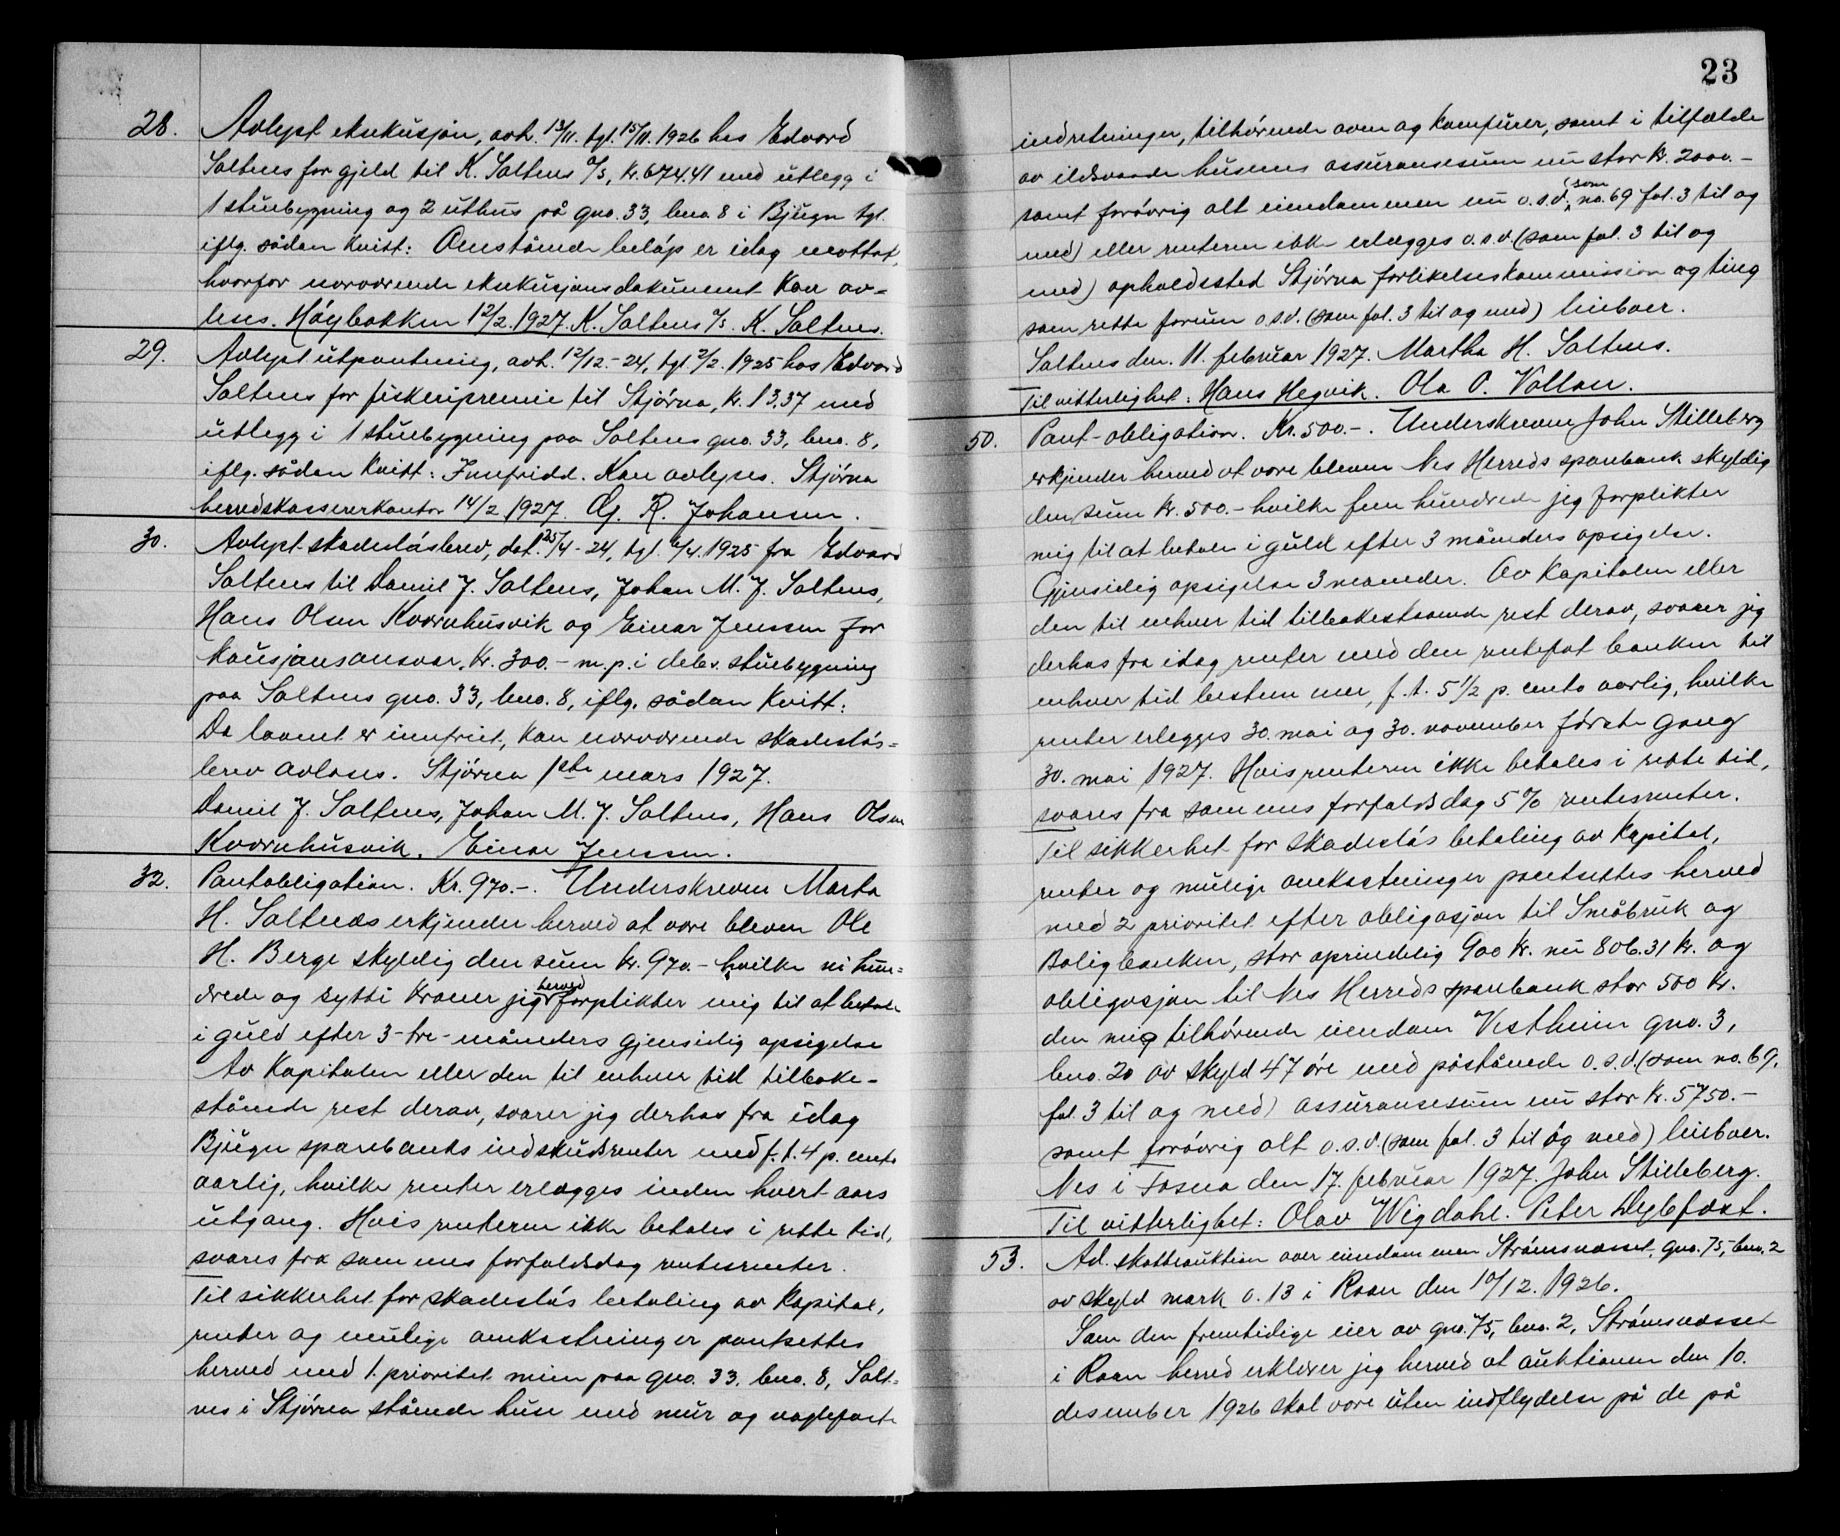 28. Avlyst eksekusjon, avh. 13/11. tgl. 15/11. 1926 hos Edvard
Saltnes for gjeld til K. Saltnes A/S, kr. 674.41 med utlegg i
1 stuebygning og 2 uthus på gno. 33, bno. 8 i Bjugn tgl.
iflg. sådan kvitt: Omstående beløp er idag mottat,
hvorfor nærværende eksekusjonsdokument kan av-
leses. Høybakken 12/2. 1927. K. Saltnes A/S. K. Saltnes.
29. Avlyst utpantning, avh. 12/12.-24, tgl. 2/2. 1925 hos Edvard
Saltnes for fiskeripremie til Stjørna, kr. 13,37 med
utlegg i 1 stuebygning paa Saltnes gno. 33, bno. 8,
iflg. sådan kvitt: Innfridd. Kan avlyses. Stjørna
herredskassererkontor 14/2 1927. R. Johansen.
30. Avlyst skadesløsbrev, dat. 25/4-24, tgl. 4. 1925 fra Edvard
Saltnes til Daniel J. Saltnes, Johan M. J. Saltnes,
Hans Olsen Kvernhusvik og Einar Jenssen for
kausjonsansvar, kr. 300.- m. p. i debs. stuebygning
paa Saltnes gno. 33, bno. 8, iflg. sådan kvitt:
Da laanet er innfriet, kan nærværende skadesløs-
brev avlæses. Stjørna 1ste mars 1927.
Daniel J. Saltnes, Johan M. J. Saltnes, Hans Olsen
Kvernhusvik. Einar Jenssen.
32. Pantobligation. Kr. 970.-. Underskreven Marta
H. Saltnæs erkjender herved at være bleven Ole
H. Berge skyldig den sum kr. 970.- hvilke ni hun-
drede og sytti kroner jeg herved forplikter mig til at betale
i guld efter 3-tre-måneders gjensidig opsigelse
Av kapitalen eller den til enhver tid tilbake-
stående rest derav, svarer jeg derhos fra idag
Bjugn sparebanks indskudsrenter med f. t. 4 p. cento
aarlig, hvilke renter erlægges inden hvert aars
utgang. Hvis renterne ikke betales i rette tid,
svares fra sammes forfaldsdag rentesrenter.
Til sikkerhet for skadesløs betaling av kapital,
renter og mulige omkostninger pantsettes
herved med 1. prioritet min paa gno. 33. bno. 8, Salt-
nes i Stjørna stående huse med mur og naglefaste
23
indretninger, tilhørende ovne og komfurer, samt i tilfælde
av ildsvaade husenes assuransesum nu stor kr. 2000.-
samt forøvrig alt eiendommen nu o.s.v. (som no. 69 fol. 3 til og
med) eller renterne ikke erlægges o.s.v. (som fol. 3 til og
med) opholdssted Stjørna forlikelseskommission og ting
som rette forum o.s.v. (som fol. 3 til og med) liebver.
Saltnes den. 11. februar 1927. Martha H. Saltnes.
Til vitterlighet: Hans Hegvik. Ola O. Vollan.
50. Pant-obligation. Kr. 500.-. Underskreven John Stilleberg
erkjender herved at være bleven Nes Herreds sparebank skyldig
den sum kr. 500.- hvilke fem hundrede jeg forplikter
mig til at betale i guld efter 3 måneders opsigelse.
Gjensidig opsigelse 3 maneder. Av kapitalen eller
den til enhver tid tilbakestaaende rest derav, svarer jeg
derhos fra idag renter med den rentefot banken til
enhver tid bestemmer, f. t. 5 1/2 p. cento aarlig, hvilke
renter erlegges 30. mai og 30. november første gang
30. mai 1927. Hvis renterne ikke betales i rette tid,
svares fra sammes forfaldsdag 5 % rentesrenter.
Til sikkerhet for skadesløs betaling av kapital,
renter og mulige omkostninger pantsettes herved
med 2 prioritet efter obligasjon til Småbruk og
Boligbanken, stor oprindelig 900 kr. nu 806.31 kr. og
obligasjon til Nes Herreds sparebank stor 500 kr.
den mig tilhørende eiendom Vestheim gno. 3,
bno. 20 av skyld 47 øre med påstående o.s.v. (som no. 69,
fol. 3 til og med) assuransesum nu stor kr. 5750.-
samt forøvrig alt o.s.v. (som fol. 3 til og med) liebver.
Nes i Fosna den 17. februar 1927. John Stilleberg.
Til vitterlighet: Olav Wigdahl. Peter Dybfæst.
53. Ad. skatteauktion over eiendommen Strømsnesset, gno. 75, bno. 2
av skyld mark 0.13 i Roan den 10/12. 1926.
Som den fremtidige eier av gno. 75, bno. 2, Strømsnesset
i Roan herred erklærer jeg herved at auktionen den 10.
desember 1926 skal være uten indflydelse på de på